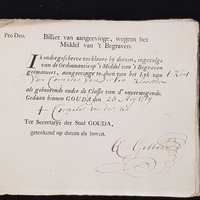 Pro Deo.
Billiet van aangeevinge, wegens het
Middel van 't Begraven.
Ik ondergeschreve verklaare by deesen, ingevolge
van de Ordonnantie op 't Middel van 't Begraven
geëmaneert, aangeevinge te doen van het Lyk van
Van Cornelis van der
als gehoorende onder de Classe van d' onvermogende.
Gedaan binnen GOUDA, den 23 Aug
Cornelis van der
Ter Secretarye der Stad GOUDA,
geteekend op datum als boven.